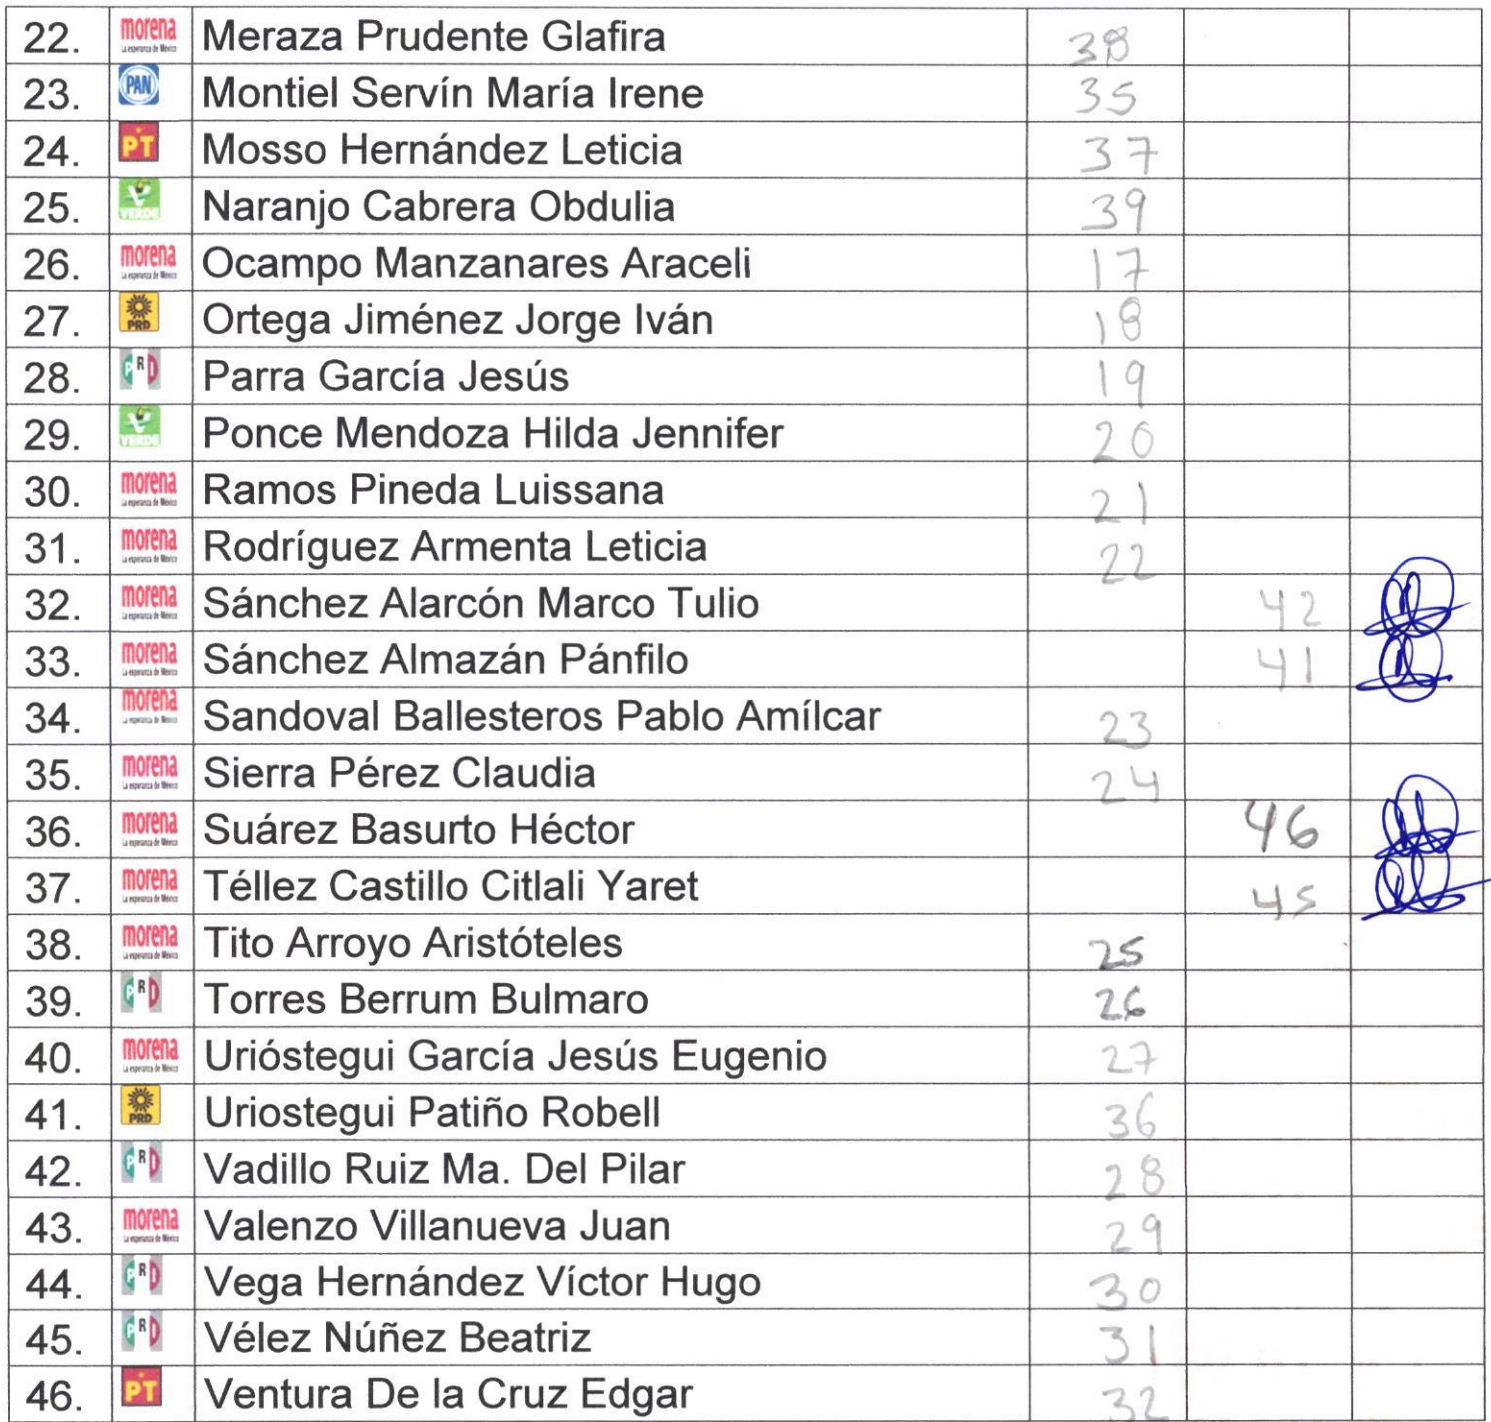 22. morena La esperanza de México Meraza Prudente Glafira 38
23. PAN Montiel Servín María Irene 35
24. PT Mosso Hernández Leticia 37
25. VERDE Naranjo Cabrera Obdulia 39
26. morena La esperanza de México Ocampo Manzanares Araceli 17
27. PRD Ortega Jiménez Jorge Iván 18
28. PRI Parra García Jesús 19
29. VERDE Ponce Mendoza Hilda Jennifer 20
30. morena La esperanza de México Ramos Pineda Luissana 21
31. morena La esperanza de México Rodríguez Armenta Leticia 22
32. morena La esperanza de México Sánchez Alarcón Marco Tulio 42
33. morena La esperanza de México Sánchez Almazán Pánfilo 41
34. morena La esperanza de México Sandoval Ballesteros Pablo Amílcar 23
35. morena La esperanza de México Sierra Pérez Claudia 24
36. morena La esperanza de México Suárez Basurto Héctor 46
37. morena La esperanza de México Téllez Castillo Citlali Yaret 45
38. morena La esperanza de México Tito Arroyo Aristóteles 25
39. PRI Torres Berrum Bulmaro 26
40. morena La esperanza de México Urióstegui García Jesús Eugenio 27
41. PRD Uriostegui Patiño Robell 36
42. PRI Vadillo Ruiz Ma. Del Pilar 28
43. morena La esperanza de México Valenzo Villanueva Juan 29
44. PRI Vega Hernández Víctor Hugo 30
45. PRI Vélez Núñez Beatriz 31
46. PT Ventura De la Cruz Edgar 32